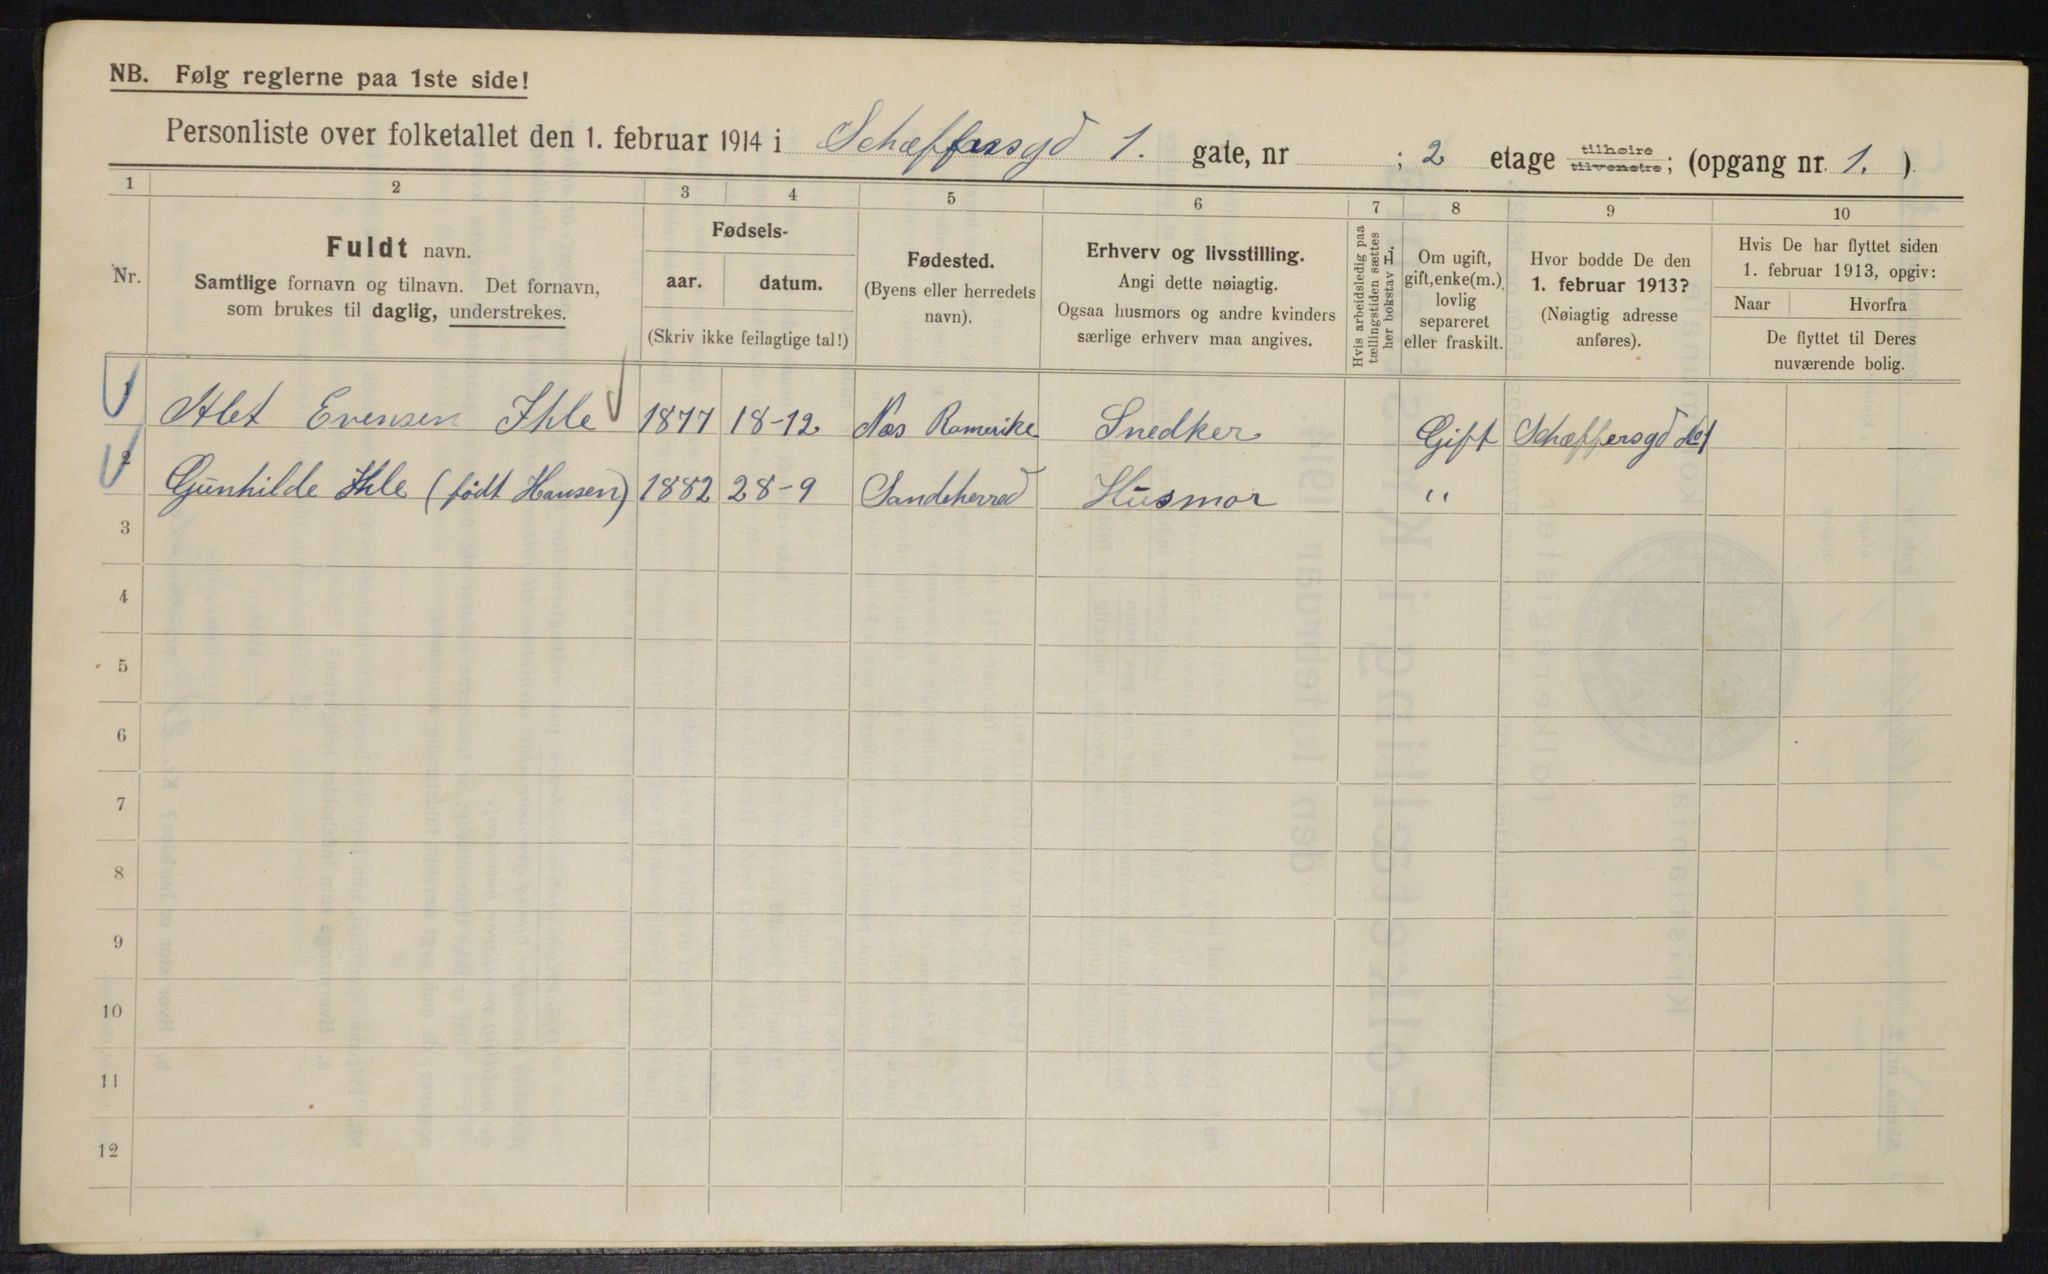 NB. Følg reglerne paa 1ste side!
Personliste over folketallet den 1. februar 1914 i Schæffersgd 1. gate, nr ; 2 etage tilhøire tilvenstre; (opgang nr. 1. )
1 2 3 4 5 6 7 8 9 10
Nr.
Fuldt navn.
Samtlige fornavn og tilnavn. Det fornavn,
som brukes til daglig, understrekes.
Fødsels-
aar. datum.
(Skriv ikke feilagtige tal!)
Fødested.
(Byens eller herredets
navn).
Erhverv og livsstilling.
Angi dette nøiagtig.
Ogsaa husmors og andre kvinders
særlige erhverv maa angives.
Hvis arbeidsledig paa
tællingstiden sættes
her bokstav L.
Om ugift,
gift, enke(m.),
lovlig
separeret
eller fraskilt.
Hvor bodde De den
1. februar 1913?
(Nøiagtig adresse
anføres).
Hvis De har flyttet siden
1. februar 1913, opgiv:
Naar Hvorfra
De flyttet til Deres
nuværende bolig.
1 Alet Evensen Ihle 1877 18-12 Næs Romerike Snedker Gift Schæffersgd No 1
2 Gunhilde Ihle (født Hansen) 1882 28-9 Sandeherred Husmor "
3
4
5
6
7
8
9
10
11
12